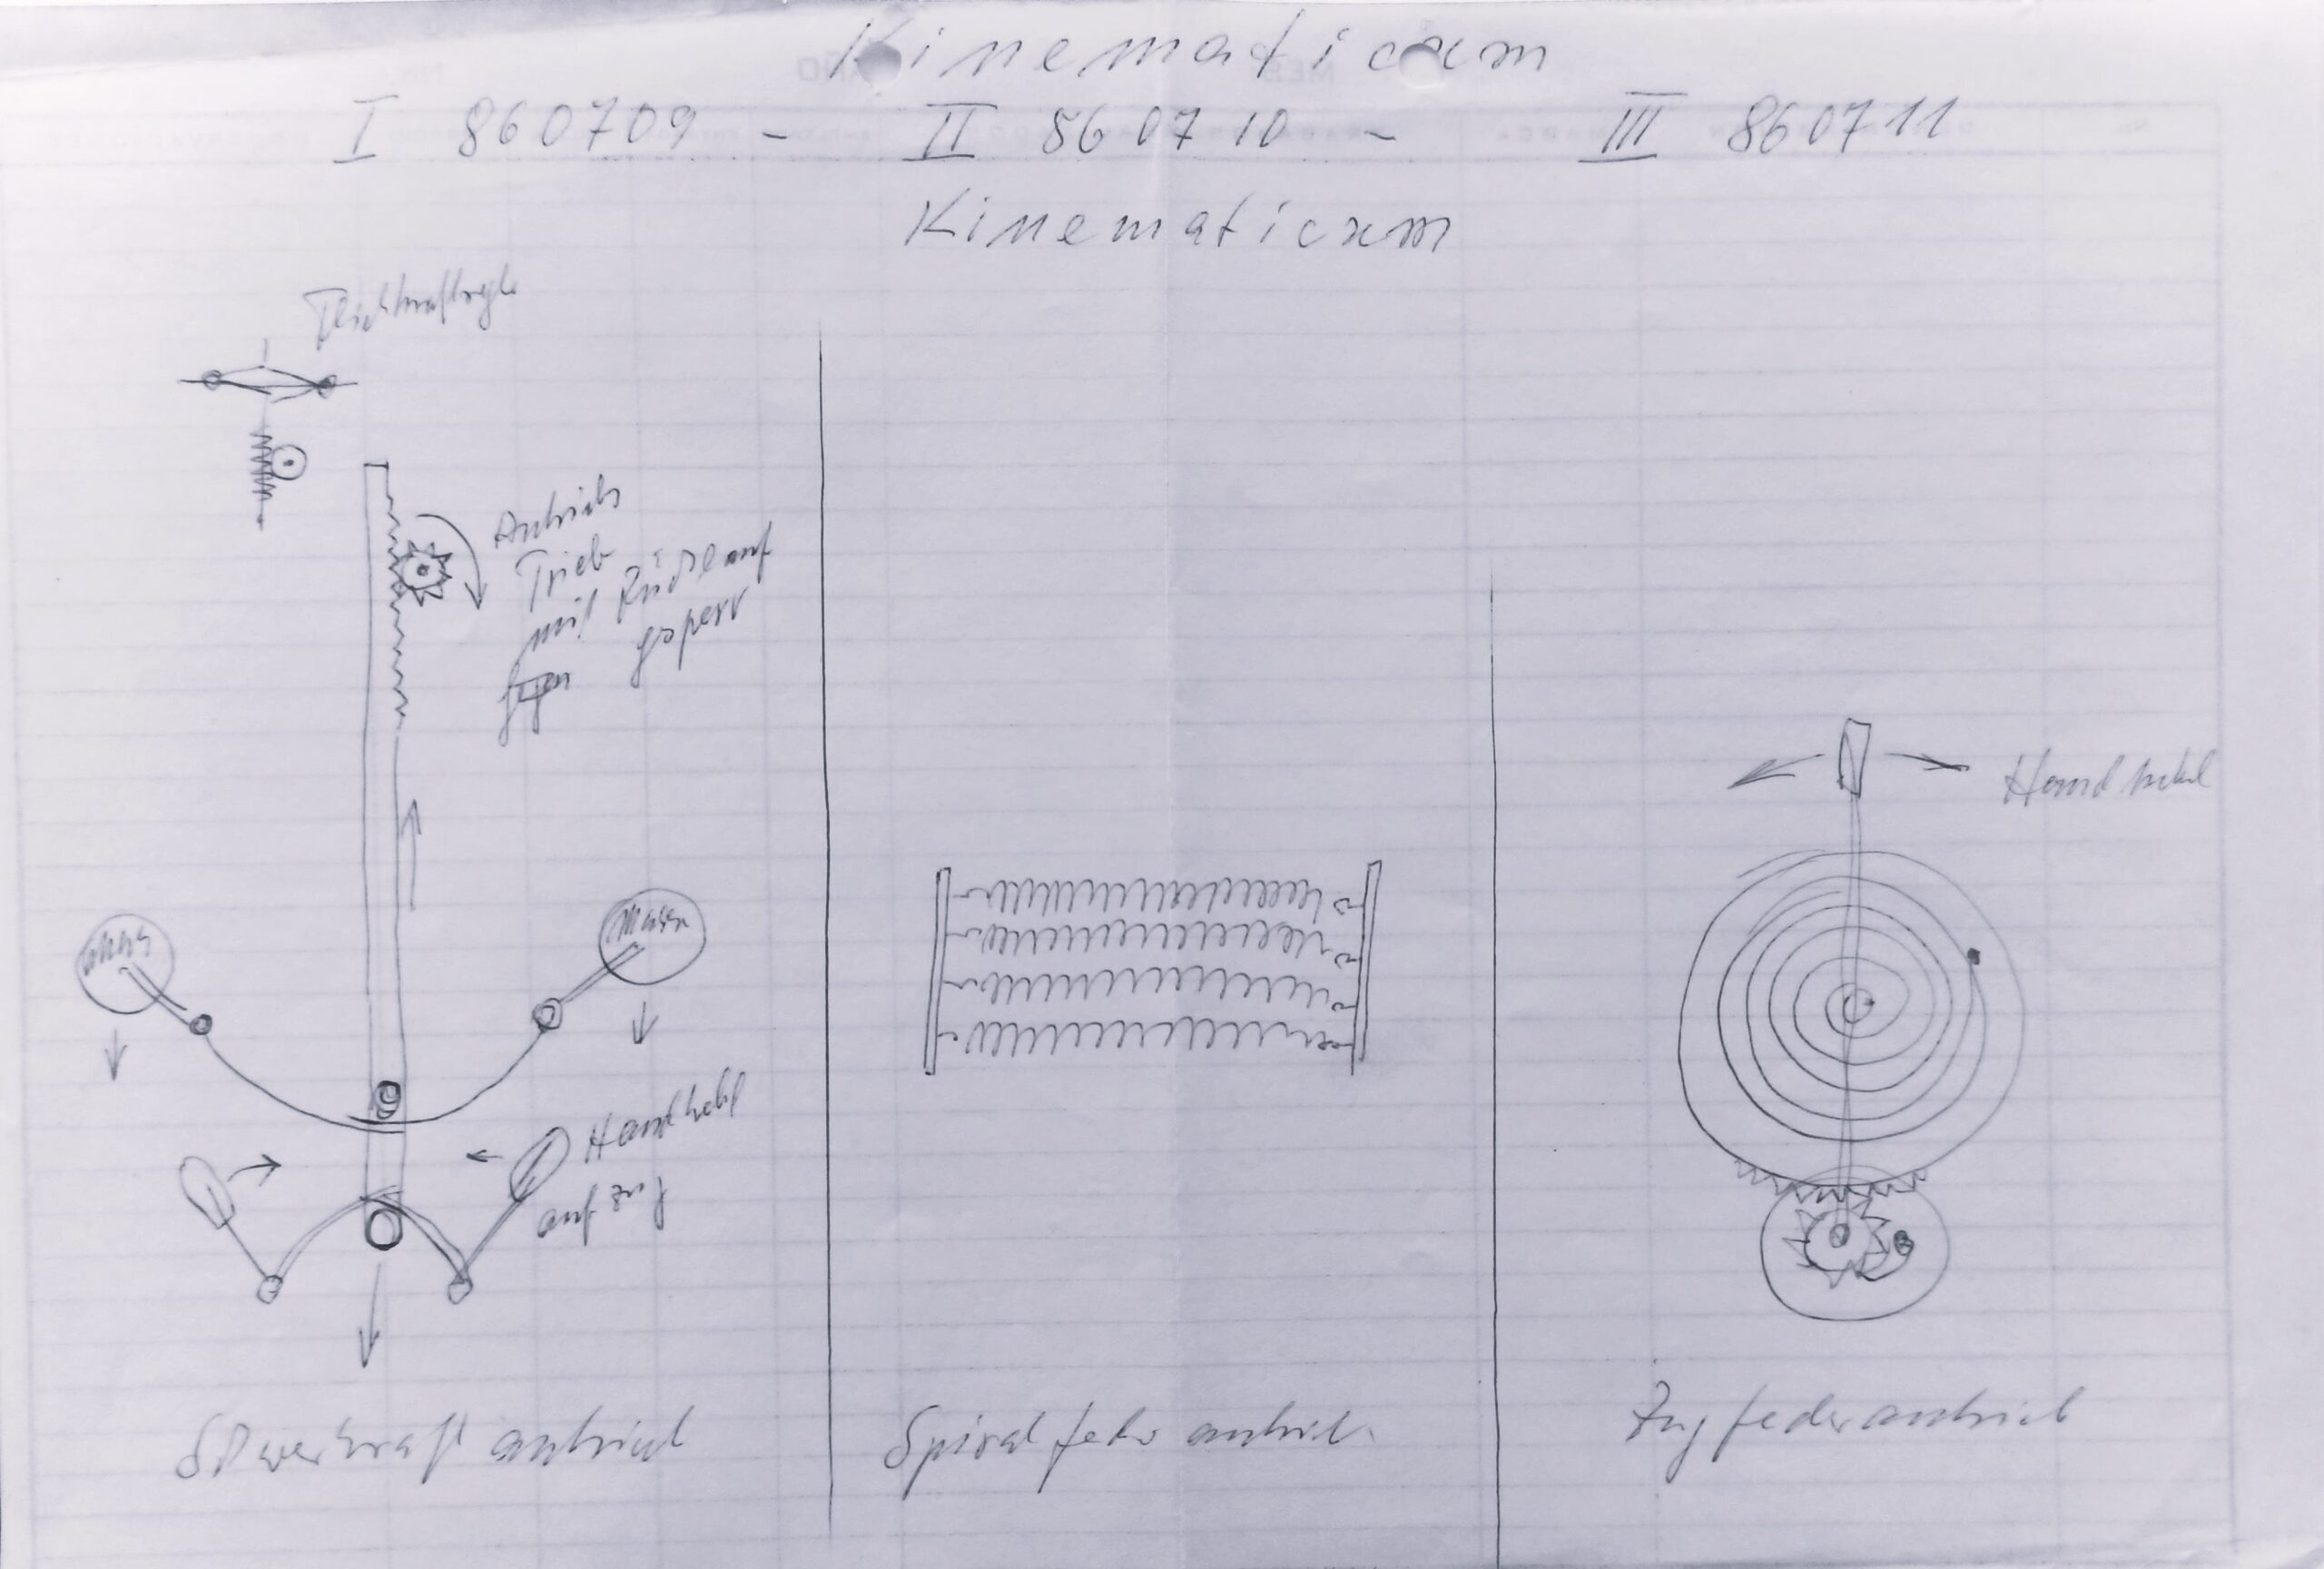 Kinematicum
I 860709 - II 860710 - III 860711
Kinematicum
Fliehkraftregler
Antriebs
Trieb
mit Rücklauf
gesperr
Masse
Handhebel
aufzug
Schwerkraft antrieb
Spiral feder antrieb
Handhebel
Zugfederantrieb